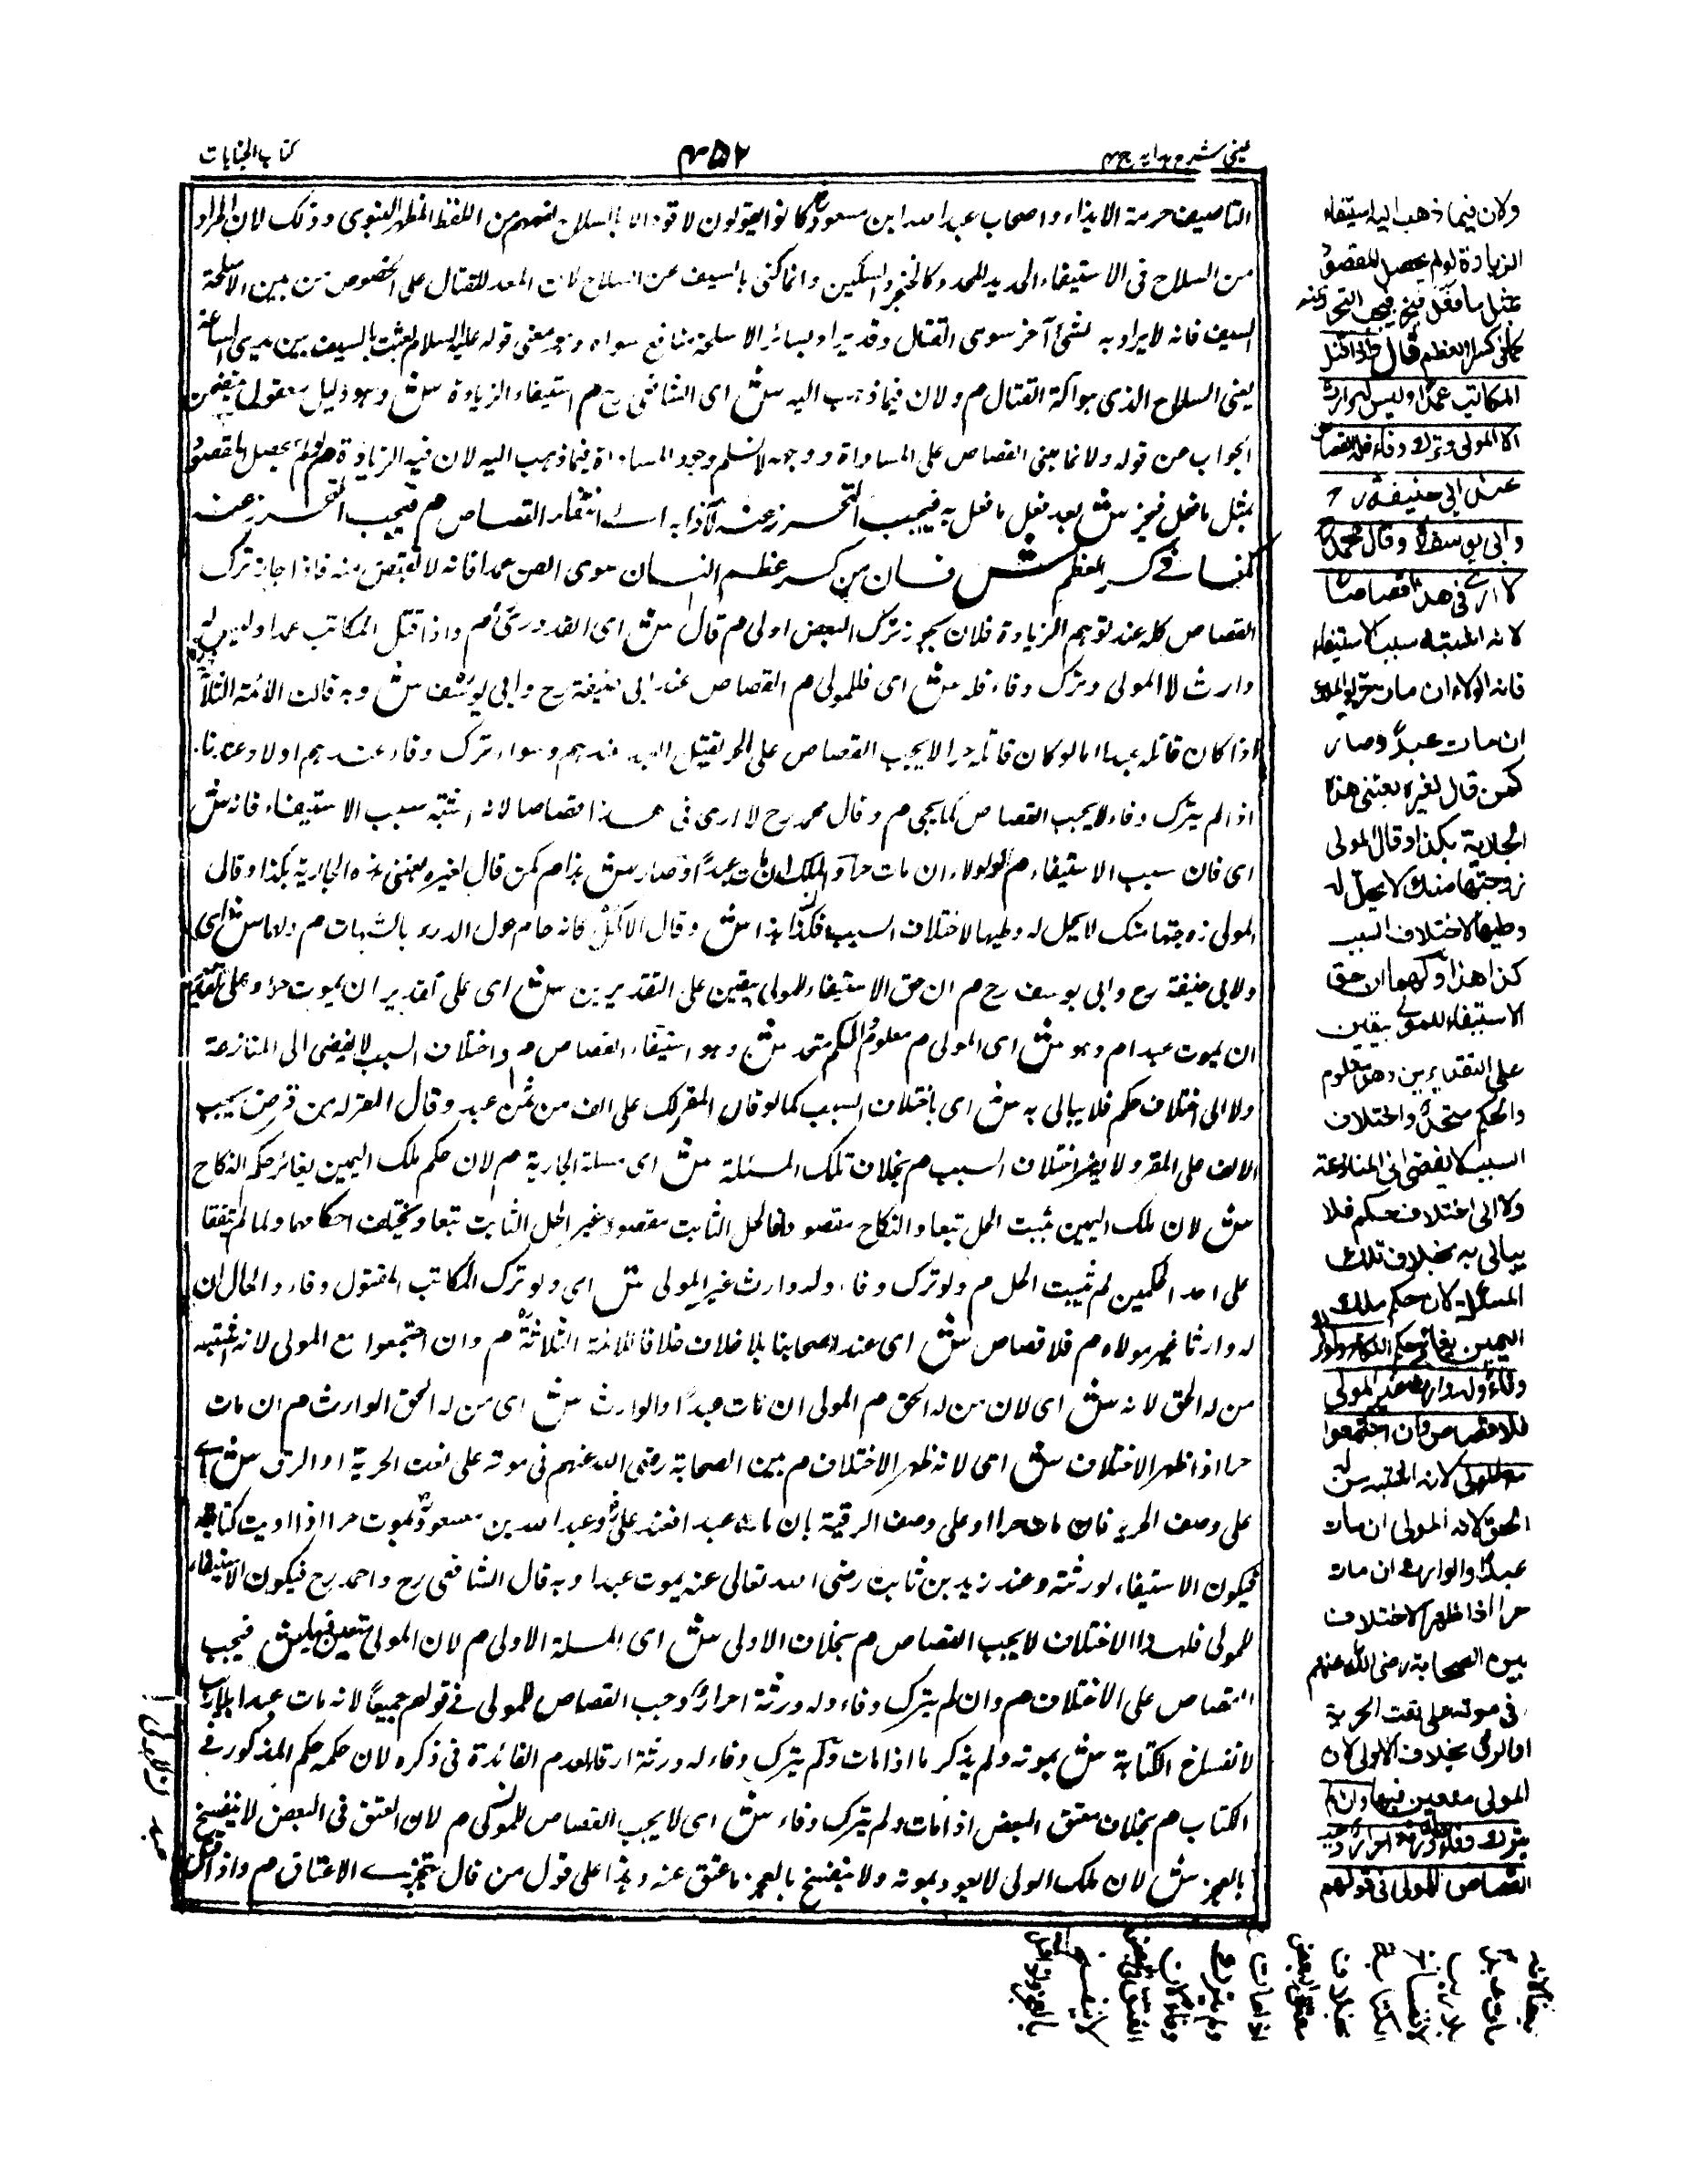 عيني شرح هدايه ج ٤
٤٥٢
كتاب الجنايات
التاصيف حرمة الايذاء واصحاب عبد الله ابن مسعود رض كانوا يقولون لا قود الا بالسلاح من اللفظ النبوى وذلك لان المراد
من السلاح فى الاستيفاء الحديد المحدد كالخنجر والسكين وانما كنى بالسيف عن السلاح لان المعد للقتال على الخصوص من بين الاسلحة
السيف فانه لا يراد به لشئ آخر سوى القتال وقد يراد بسائر الاسلحة منافع سواه وهو معنى قوله عليه السلام بعثت بالسيف بين يدى الساعة
يعنى السلاح الذى هو آلة القتال م ولان فيما ذهب اليه ش اى الشافعى رح م استيفاء الزيادة ش وهو دليل معقول يتضمن
الجواب عن قوله ولان مبنى القصاص على المساواة ووجهه لا نسلم وجود المساواة فيما ذهب اليه لان فيه الزيادة م لو لم يحصل المقصود
بمثل ما فعل فيحز ش بعد فعل ما فعل به فيجب التحرز عنه انتفاء القصاص م فيجب التحرز عنه
كما فى كسر العظم ش فان من كسر عظم انسان سوى السن عمدا فانه لا يقتص منه فاذا جاز ترك
القصاص كله عند توهم الزيادة فلان يجوز ترك البعض اولى م قال ش اى القدورى م واذا قتل المكاتب عمدا وليس له
وارث الا المولى وترك وفاء فله ش اى فللمولى م القصاص عند ابى حنيفة رح وابى يوسف ش وبه قالت الائمة الثلاثة
اذا كان قاتله عبدا اما لو كان قاتله حرا لا يجب القصاص على الحر بقتل العبد عندهم وسواء ترك وفاء عندهم اولا وعندنا
اذا لم يترك وفاء لا يجب القصاص كما يجى م وقال محمد رح لا ارى فى هذا قصاصا لانه اشتبه سبب الاستيفاء فانه ش
اى فان سبب الاستيفاء م الولاء ان مات حرا والملك ان مات عبدا وصار ش هذا م كمن قال لغيره بعتنى هذه الجارية بكذا وقال
المولى زوجتها منك لا يحل له وطيها لاختلاف السبب فكذا هذا ش وقال الاكمل كانه حام حول الدرء بالشبهات م ولهما ش اى
ولابى حنيفة رح وابى يوسف رح م ان حق الاستيفاء للمولى بيقين على التقديرين ش اى على تقدير ان يموت حرا وعلى تقدير
ان يموت عبدا م وهو ش اى المولى م معلوم والحكم متحد ش وهو استيفاء القصاص م واختلاف السبب لا يفضى الى المنازعة
ولا الى اختلاف حكم فلا يبالى به ش اى باختلاف السبب كما لو قال المقر لك على الف من ثمن عبد وقال المقر له من قرض يجب
الالف على المقر ولا يضر اختلاف السبب م بخلاف تلك المسئلة ش اى مسئلة الجارية م لان حكم ملك اليمين يغائر حكم النكاح
ش لان ملك اليمين يثبت الحل تبعا والنكاح مقصودا فالحل الثابت مقصودا غير الحل الثابت تبعا وتختلف احكامهما ولما لم يتفقا
على احد الحكمين لم يثبت الحل م ولو ترك وفاء وله وارث غير المولى ش اى ولو ترك المكاتب المقتول وفاء والحال ان
له وارثا غير مولاه م فلا قصاص ش اى عند اصحابنا بلا خلاف خلافا للائمة الثلاثة م وان اجتمعوا مع المولى لانه اشتبه
من له الحق لانه ش اى لان من له الحق م المولى ان مات عبدا والوارث ش اى من له الحق الوارث م ان مات
حرا اذ ظهر الاختلاف ش اى لانه ظهر الاختلاف م بين الصحابة رضى الله عنهم فى موته على نعت الحرية او الرق ش اى
على وصف الحرية فان مات حرا او على وصف الرقية بان مات عبدا فعند على وعبد الله بن مسعود يموت حرا اذا اديت كتابته
فيكون الاستيفاء لورثته وعند زيد بن ثابت رضى الله تعالى عنه يموت عبدا وبه قال الشافعى رح واحمد رح فيكون الاستيفاء
للمولى فلهذا الاختلاف لا يجب القصاص م بخلاف الاولى ش اى المسئلة الاولى م لان المولى متعين فيها ش فيجب
القصاص على الاختلاف م وان لم يترك وفاء وله ورثة احرار وجب القصاص للمولى فى قولهم جميعا لانه مات عبدا بلا ريب
لانفساخ الكتابة ش بموته ولم يذكر ما اذا مات ولم يترك وفاء له ورثة ارقاء لعدم الفائدة فى ذكره لان حكمه حكم المذكور فى
الكتاب م بخلاف معتق البعض اذا مات ولم يترك وفاء ش اى لا يجب القصاص للمولى م لان العتق فى البعض لا ينفسخ
بالعجز ش لان ملك المولى لا يعود بموته ولا ينفسخ بالعجز ما عتق عنه وهذا على قول من قال بتجزى الاعتاق م واذا قتل
ولان فيما ذهب اليه استيفاء
الزيادة لو لم يحصل المقصود
بمثل ما فعل فيحز فيجب التحرز عنه
كما فى كسر العظم قال واذا قتل
المكاتب عمدا وليس له وارث
الا المولى وترك وفاء فله القصاص
عند ابى حنيفة رح
وابى يوسف رح وقال محمد رح
لا ارى فى هذا قصاصا
لانه اشتبه سبب الاستيفاء
فانه الولاء ان مات حرا والملك
ان مات عبدا وصار
كمن قال لغيره بعتنى هذه
الجارية بكذا وقال المولى
زوجتها منك لا يحل له
وطيها لاختلاف السبب
كذا هذا ولهما ان حق
الاستيفاء للمولى بيقين
على التقديرين وهو معلوم
والحكم متحد واختلاف
السبب لا يفضى الى المنازعة
ولا الى اختلاف حكم فلا
يبالى به بخلاف تلك
المسألة لان حكم ملك
اليمين يغائر حكم النكاح ولو ترك
وفاء وله وارث غير المولى
فلا قصاص وان اجتمعوا
مع المولى لانه اشتبه من له
الحق لانه المولى ان مات
عبدا والوارث ان مات
حرا اذا ظهر الاختلاف
بين الصحابة رضى الله عنهم
فى موته على نعت الحرية
او الرق بخلاف الاولى لان
المولى متعين فيها وان لم
يترك وفاء وله ورثة احرار وجب
القصاص للمولى فى قولهم
جميعا لانه
مات عبدا
بلا ريب
لانفساخ
الكتابة
بخلاف
معتق البعض
اذا مات
ولم يترك
وفاء لان
العتق فى البعض
لا ينفسخ
بالعجز واذا قتل